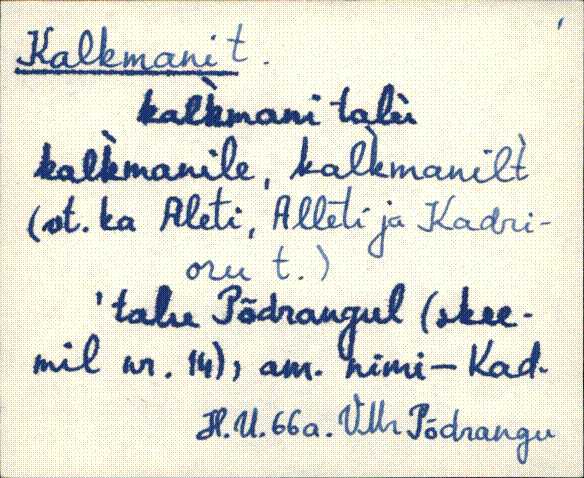 Kalkmani t.
kal̀kmani talù
kal̀kmanile, kal̀kmanilt̀
(vt. ka Aleti, Alleti ja Kadri-
oru t.)
'talu Põdrangul (skee-
mil nr. 14), am. nimi - Kad.
H.U. 66a. VMr Põdrangu